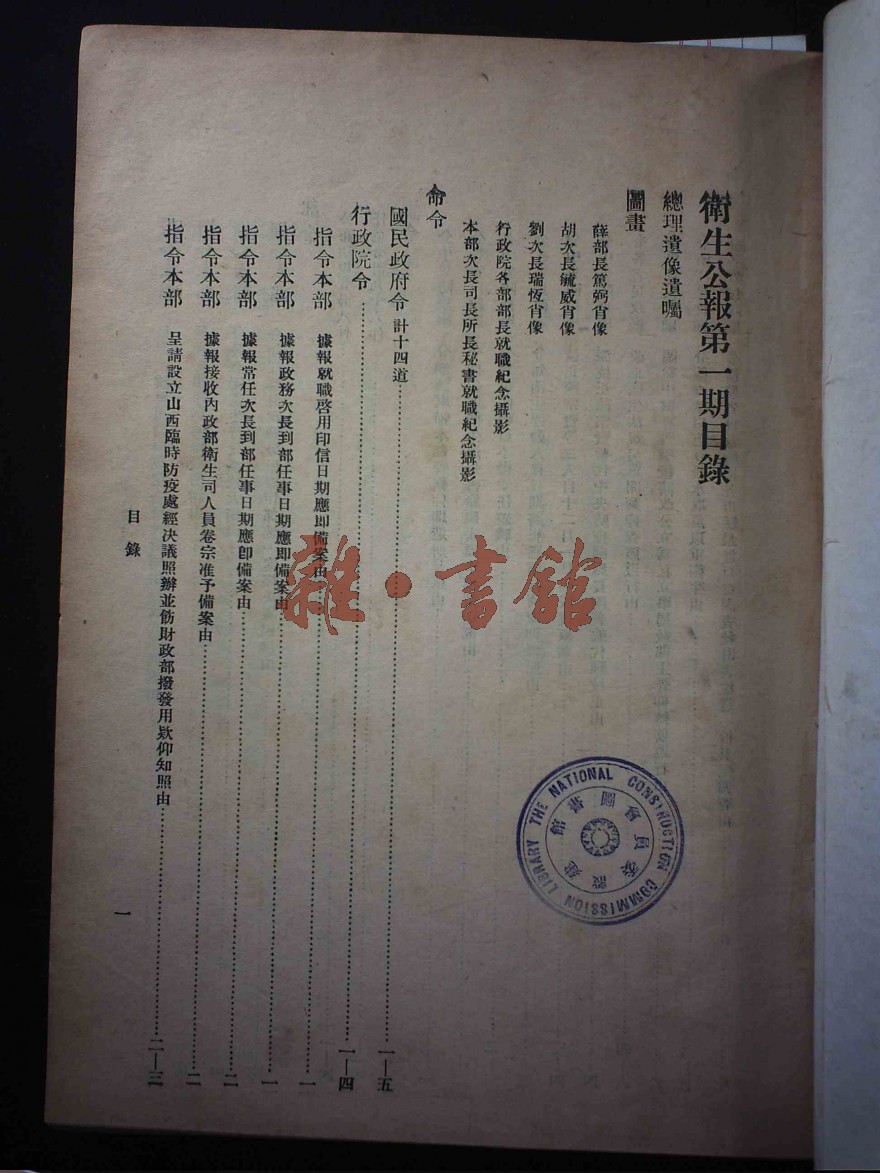 衛生公報第一期目錄
總理遺像遺囑
圖畫
薛部長篤弼肖像
胡次長毓威肖像
劉次長瑞恆肖像
行政院各部部長就職紀念攝影
本部次長司長所長秘書就職紀念攝影
命令
國民政府令 計十四道……一—五
行政院令……一—四
指令本部 據報就職啓用印信日期應即備案由……一
指令本部 據報政務次長到部任事日期應即備案由……一
指令本部 據報常任次長到部任事日期應卽備案由……二
指令本部 據報接收內政部衛生司人員卷宗准予備案由……二
指令本部 呈請設立山西臨時防疫處經決議照辦並飭財政部撥發用欵仰知照由……二—三
目錄
一
雜·書館
LIBRARY THE NATIONAL CONSTRUCTION COMMISSION
建設委員會圖書館